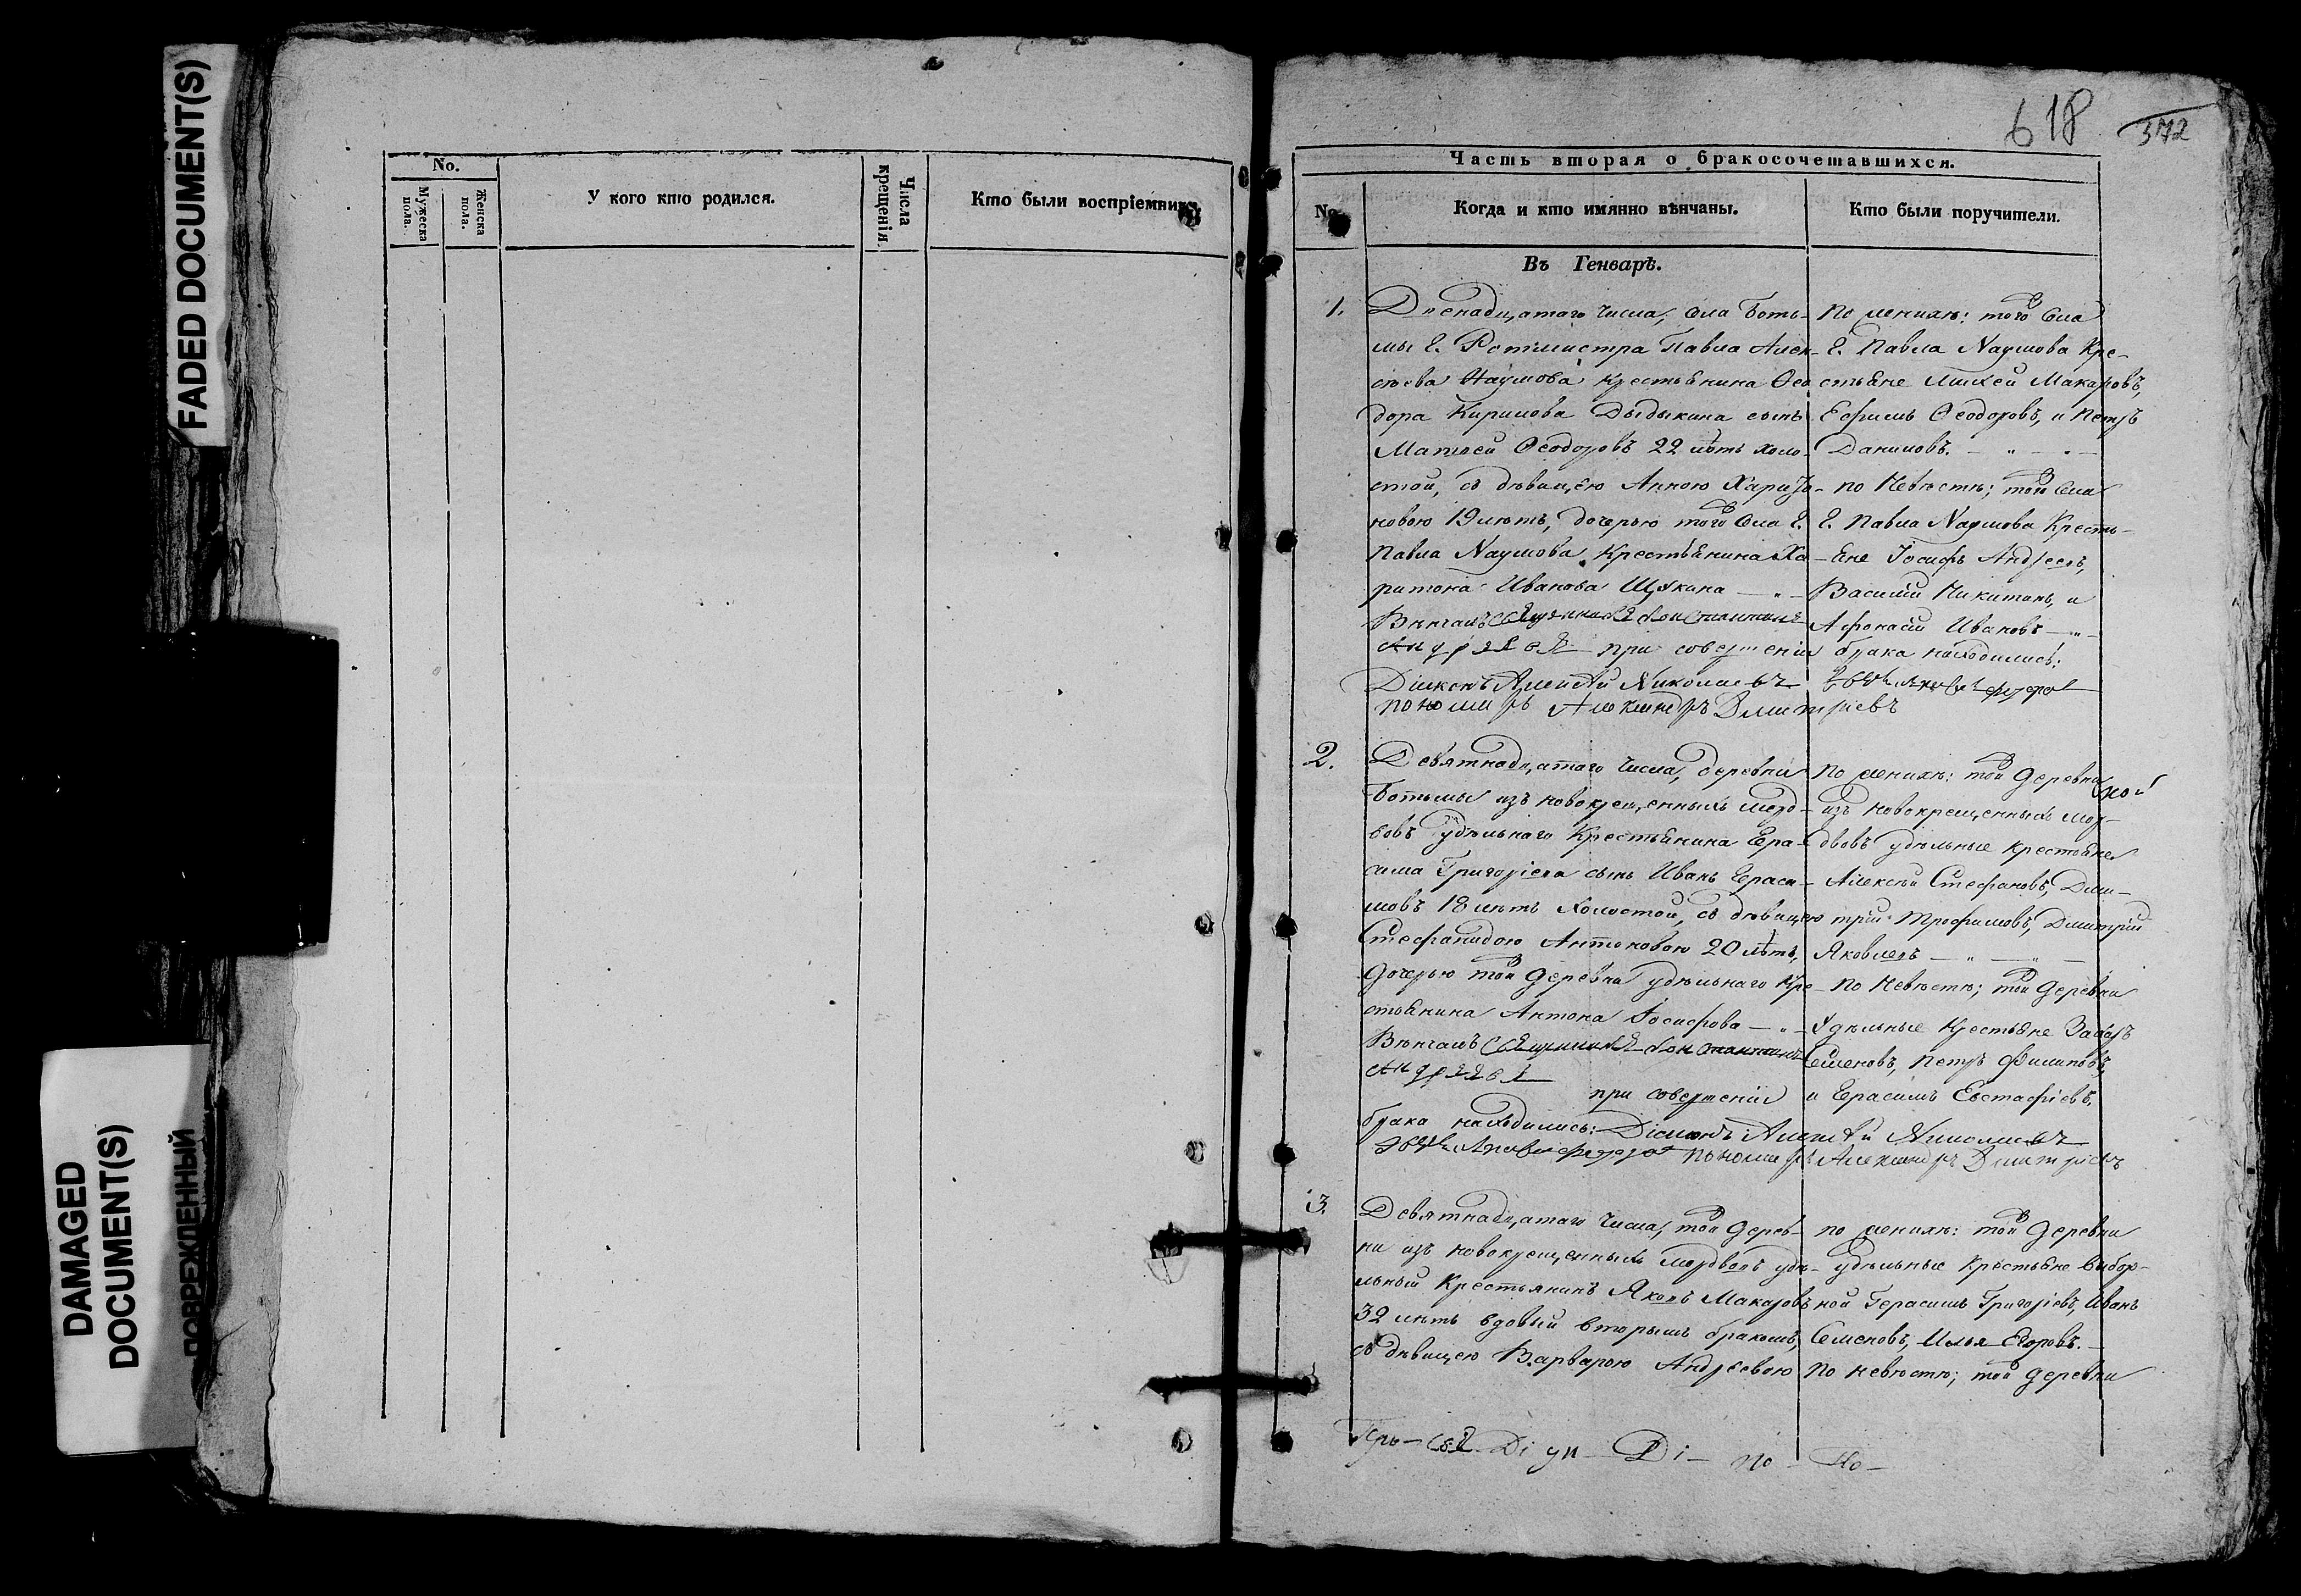 FADED DOCUMENT(S)
DAMAGED
DOCUMENT(S)
ПОВРЕЖДЕННЫЙ
No.
Мужеска пола.
Женска пола.
У кого кто родился.
Числа крещенія.
Кто были воспріемники
618
372
Часть вторая о бракосочетавшихся.
No
Когда и кто имянно вѣнчаны.
Кто были поручители.
Въ Генварѣ.
1.
Двенадцатаго числа, села Боть-
мы Г. Ротмистра Павла Алек-
сѣева Наумова крестьянина Ѳео
дора Кирилова Дыдыкина сынъ
Матвей Ѳеодоровъ 22 лѣтъ холо-
стой, съ дѣвицею Анною Харито-
новою 19 лѣтъ, дочерью того села Г.
Павла Наумова крестьянина Ха-
ритона Иванова Щукина
Вѣнчалъ Священникъ Константинъ
Андреевъ при совершеніи брака находились:
Діаконъ Алексѣй Николаевъ
пономарь Александръ Димитріевъ
По женихѣ: того села
Г. Павла Наумова кре-
стьяне Михей Макаровъ,
Ефимъ Ѳеодоровъ, и Петръ
Даниловъ.
по Невѣстѣ; того села
Г. Павла Наумова кресть-
яне Іосифъ Андреевъ,
Василій Никитинъ, и
Афонасій Ивановъ
2.
Девятнадцатаго числа, деревни
Ботьмы изъ новокрещенныхъ мордо-
вовъ удѣльнаго крестьянина Гера-
сима Григоріева сынъ Иванъ Гераси-
мовъ 18 лѣтъ холостой, съ дѣвицею
Стефанидою Антоновою 20 лѣтъ,
дочерью той деревни удѣльнаго кре-
стьянина Антона Іосифова
Вѣнчалъ Священникъ Константинъ
Андреевъ
при совершеніи
брака находились: Діаконъ Алексѣй Николаевъ
пономарь Александръ Димитріевъ
По женихѣ: той деревни
изъ новокрещенныхъ мор-
двовъ удѣльные крестьяне
Алексѣй Стефановъ, Дми-
трій Трофимовъ, Дмитрій
Яковлевъ
по Невѣстѣ; той деревни
Удѣльные крестьяне Захаръ
Семеновъ, Петръ Филиповъ,
и Герасимъ Евстафіевъ.
3.
Девятнадцатаго числа, той дерев-
ни изъ новокрещенныхъ мордвовъ удѣ-
льный крестьянинъ Яковъ Макаровъ
32 лѣтъ вдовый вторымъ бракомъ,
съ дѣвицею Варварою Андреевою
по женихѣ: той деревни
удѣльные крестьяне выбор-
ной Герасимъ Григоріевъ, Иванъ
Семеновъ, Илья Егоровъ.
по невѣстѣ; той деревни